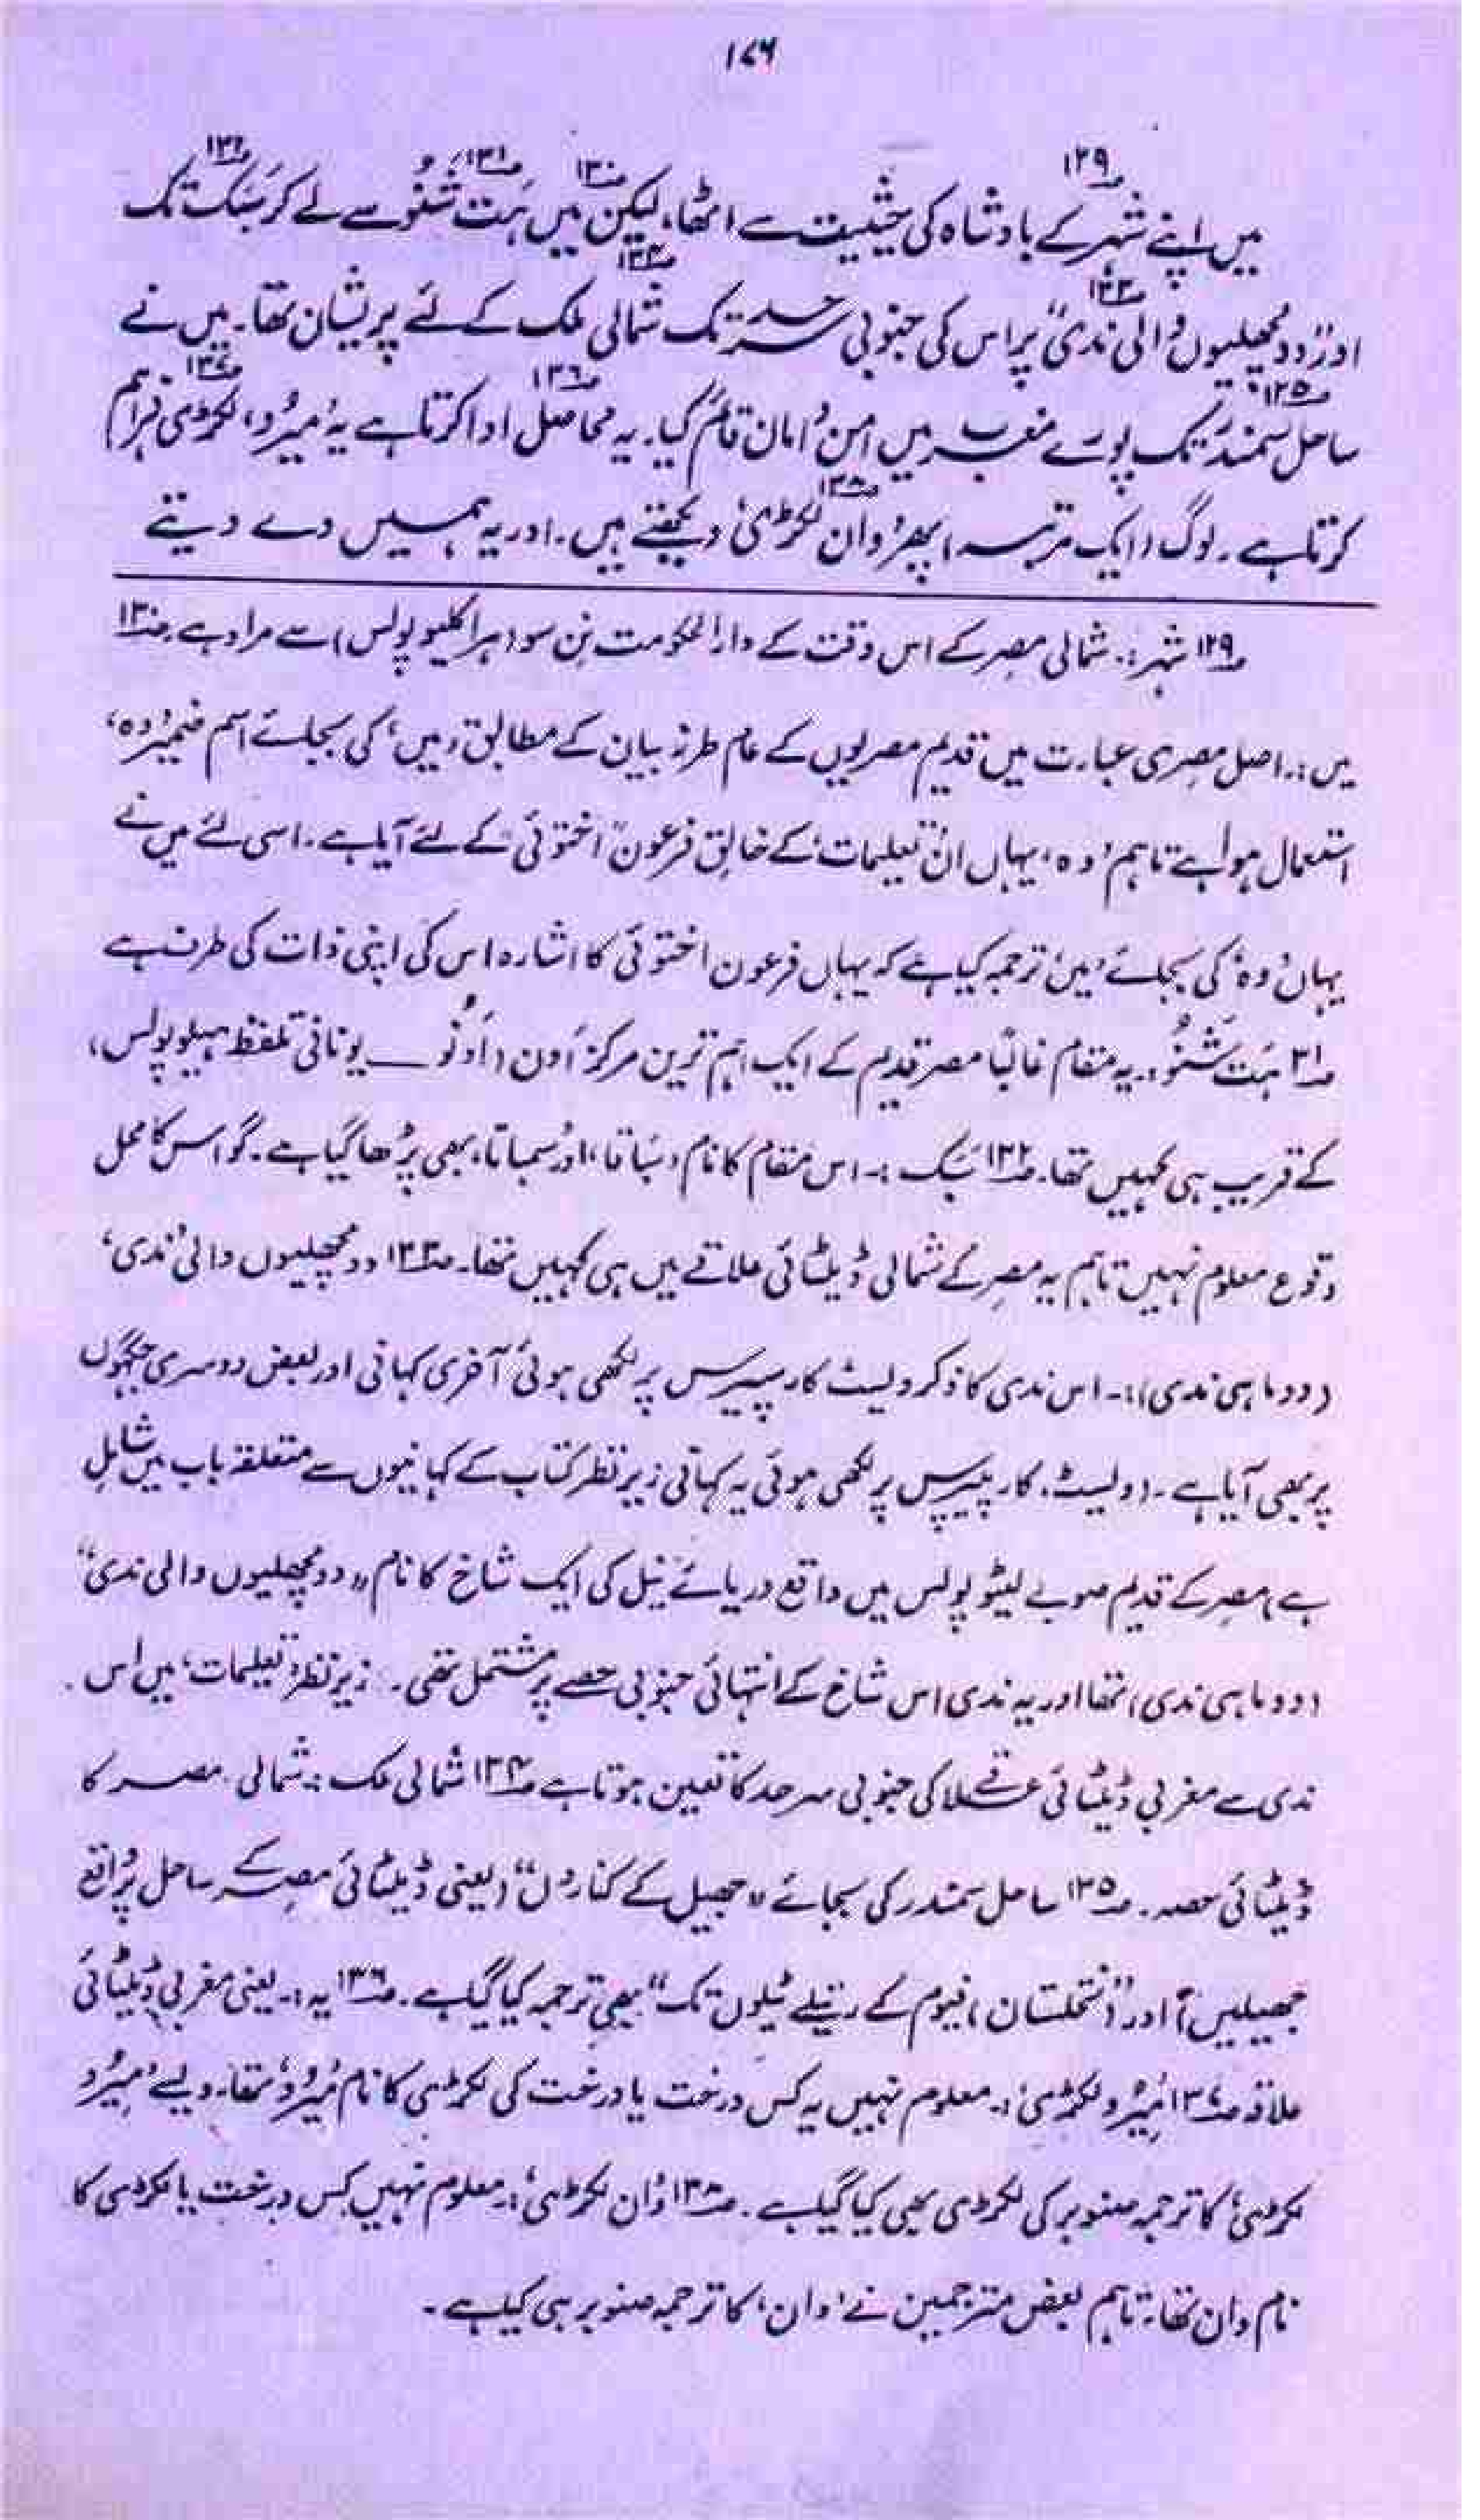 ۱۷۶
میں اپنے شہر۱۲۹ کے بادشاہ کی حیثیت سے اٹھا، لیکن میں۱۳۰ ہَت شَنُو۱۳۱ سے لے کر سَبَک۱۳۲ تک
اور ”دو مچھلیوں والی ندی“۱۳۳ پر اس کی جنوبی سرحد تک شمالی ملک۱۳۴ کے لئے پریشان تھا۔ میں نے
ساحل سمندر۱۳۵ تک پورے مغرب میں امن و امان قائم کیا۔ یہ۱۳۶ محاصل ادا کرتا ہے یہ ’مِیرُو‘ لکڑی۱۳۷ فراہم
کرتا ہے۔ لوگ (ایک مرتبہ) پھر ’وان لکڑی‘۱۳۸ دیکھتے ہیں۔ اور یہ ہمیں دے دیتے
۱۲۹ شہر:۔ شمالی مصر کے اس وقت کے دارالحکومت نِن سو (ہراکلیوپولس) سے مراد ہے۔ ۱۳۰
میں:۔ اصل مصری عبارت میں قدیم مصریوں کے عام طرز بیان کے مطابق ’میں‘ کی بجائے اسم ضمیر ’وہ‘
استعمال ہوا ہے تاہم ’وہ‘ یہاں ان ’تعلیمات‘ کے خالق فرعون ”اختوئی“ کے لئے آیا ہے۔ اسی لئے میں نے
یہاں ’وہ‘ کی بجائے ’میں‘ ترجمہ کیا ہے کہ یہاں فرعون اختوئی کا اشارہ اس کی اپنی ذات کی طرف ہے
۱۳۱ ہَت شَنُو:۔ یہ مقام غالباً مصر قدیم کے ایک اہم ترین مرکز اَون (اَونُو ــ یونانی تلفظ ہیلوپولس)
کے قریب ہی کہیں تھا۔ ۱۳۲ سَبَک:۔ اس مقام کا نام ’سَباقا‘ اور ’سمباتا‘ بھی پڑھا گیا ہے۔ گو اس کا محل
وقوع معلوم نہیں تاہم یہ مصر کے شمالی ڈیلٹائی علاقے میں ہی کہیں تھا۔ ۱۳۳ دو مچھلیوں والی ’ندی‘
(دو ماہی ندی):۔ اس ندی کا ذکر ولیٹ کار پیپرس پر لکھی ہوئی آخری کہانی اور بعض دوسری جگہوں
پر بھی آیا ہے۔ (ولیٹ کار پیپرس پر لکھی ہوئی یہ کہانی زیر نظر کتاب کے کہانیوں سے متعلقہ باب میں شامل
ہے) مصر کے قدیم صوبے لیٹوپولس میں واقع دریائے نیل کی ایک شاخ کا نام ”دو مچھلیوں والی ندی“
(دو ماہی ندی) تھا اور یہ ندی اس شاخ کے انتہائی جنوبی حصے پر مشتمل تھی۔ زیر نظر ’تعلیمات‘ میں اس
ندی سے مغربی ڈیلٹائی علاقے کی جنوبی سرحد کا تعین ہوتا ہے ۱۳۴ شمالی ملک:۔ شمالی مصر کا
ڈیلٹائی حصہ۔ ۱۳۵ ساحل سمندر کی بجائے ”جھیل کے کناروں“ (یعنی ڈیلٹائی مصر کے ساحل پر واقع
جھیلیں) اور ”(نخلستان) فیوم کے ریتیلے ٹیلوں تک“ بھی ترجمہ کیا گیا ہے۔ ۱۳۶ یہ:۔ یعنی مغربی ڈیلٹائی
علاقہ ۱۳۷ ’مِیرُو لکڑی‘:۔ معلوم نہیں یہ کس درخت یا درخت کی لکڑی کا نام ’مِیرُو‘ تھا۔ ویسے ’مِیرُو
لکڑی‘ کا ترجمہ صنوبر کی لکڑی بھی کیا گیا ہے۔ ۱۳۸ ’وان لکڑی‘:۔ معلوم نہیں کس درخت یا لکڑی کا
نام وان تھا۔ تاہم بعض مترجمین نے ’وان‘ کا ترجمہ صنوبر ہی کیا ہے۔